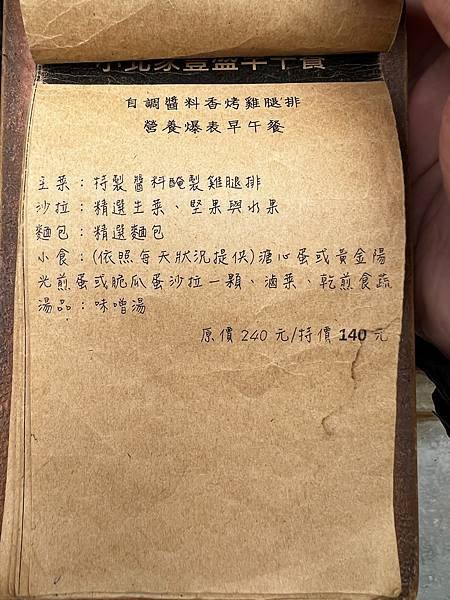 自調醬料香烤雞腿排
營養爆表早午餐
主菜：特製醬料醃製雞腿排
沙拉：精選生菜、堅果與水果
麵包：精選麵包
小食：(依照每天狀況提供)溏心蛋或黃金陽
光煎蛋或脆瓜蛋沙拉一顆、滷菜、乾煎食蔬
湯品：味噌湯
原價 240 元/特價 140 元